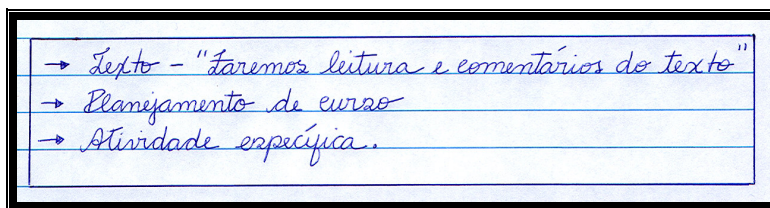 → Texto - "Faremos leitura e comentários do texto"
→ Planejamento de curso
→ Atividade específica.